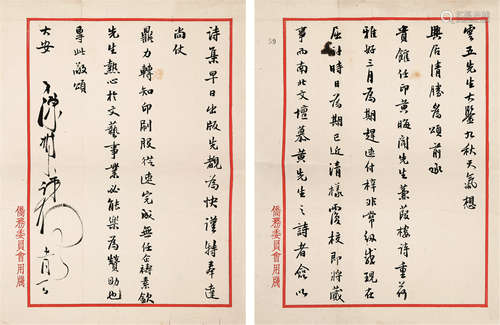 雲五先生大鑒九秋天氣想
興居清勝為頌前承
貴館任印黃晦聞先生蒹葭樓詩重荷
雅好三月為期趕速付梓非常級感現在
屈計時日為期已近清樣覆校即將蕆
事而南北文壇慕黃先生之詩者僉以
詩集早日出版先觀為快謹特奉達
尚仗
鼎力轉知印刷股從速完成無任企禱素欽
先生熱心於文藝事業必能樂為贊助也
專此敬頌
大安
僑務委員會用牋
僑務委員會用牋
59